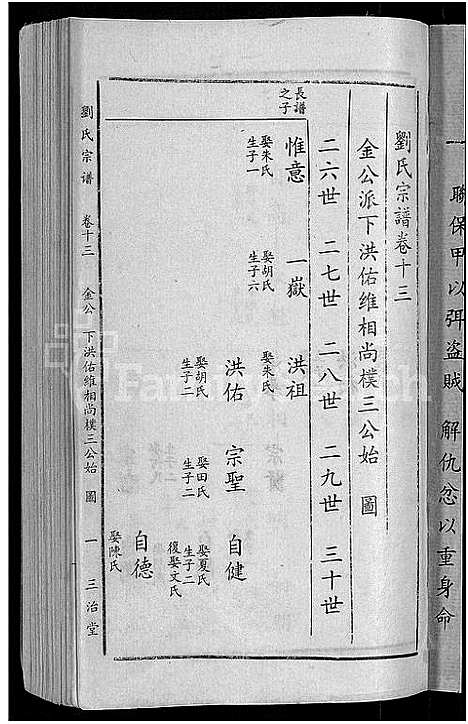 一 聯保甲以弭盜賊 解仇忿以重身命
劉氏宗譜卷十三
金公派下洪佑維相尚樸三公始 圖
二六世 二七世 二八世 二九世 三十世
長譜之子
惟意
娶朱氏
生子一
一嶽
娶胡氏
生子六
洪祖
娶朱氏
洪佑
娶胡氏
生子二
宗聖
娶田氏
生子二
自健
娶夏氏
生子二
復娶文氏
自德
娶陳氏
劉氏宗譜 卷十三 金公 下洪佑維相尚樸三公始 圖 一 三治堂